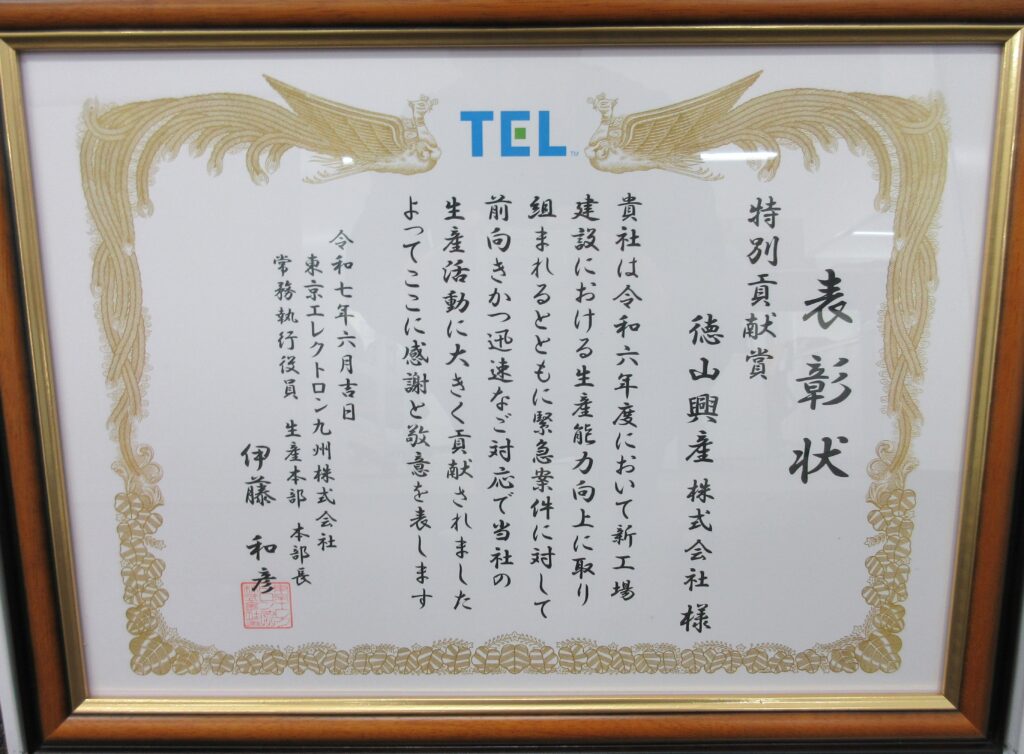 TEL
表彰状
特別貢献賞
徳山興産株式会社様
貴社は令和六年度において新工場
建設における生産能力向上に取り
組まれるとともに緊急案件に対して
前向きかつ迅速なご対応で当社の
生産活動に大きく貢献されました
よってここに感謝と敬意を表します
令和七年六月吉日
東京エレクトロン九州株式会社
常務執行役員 生産本部 本部長
伊藤 和彦